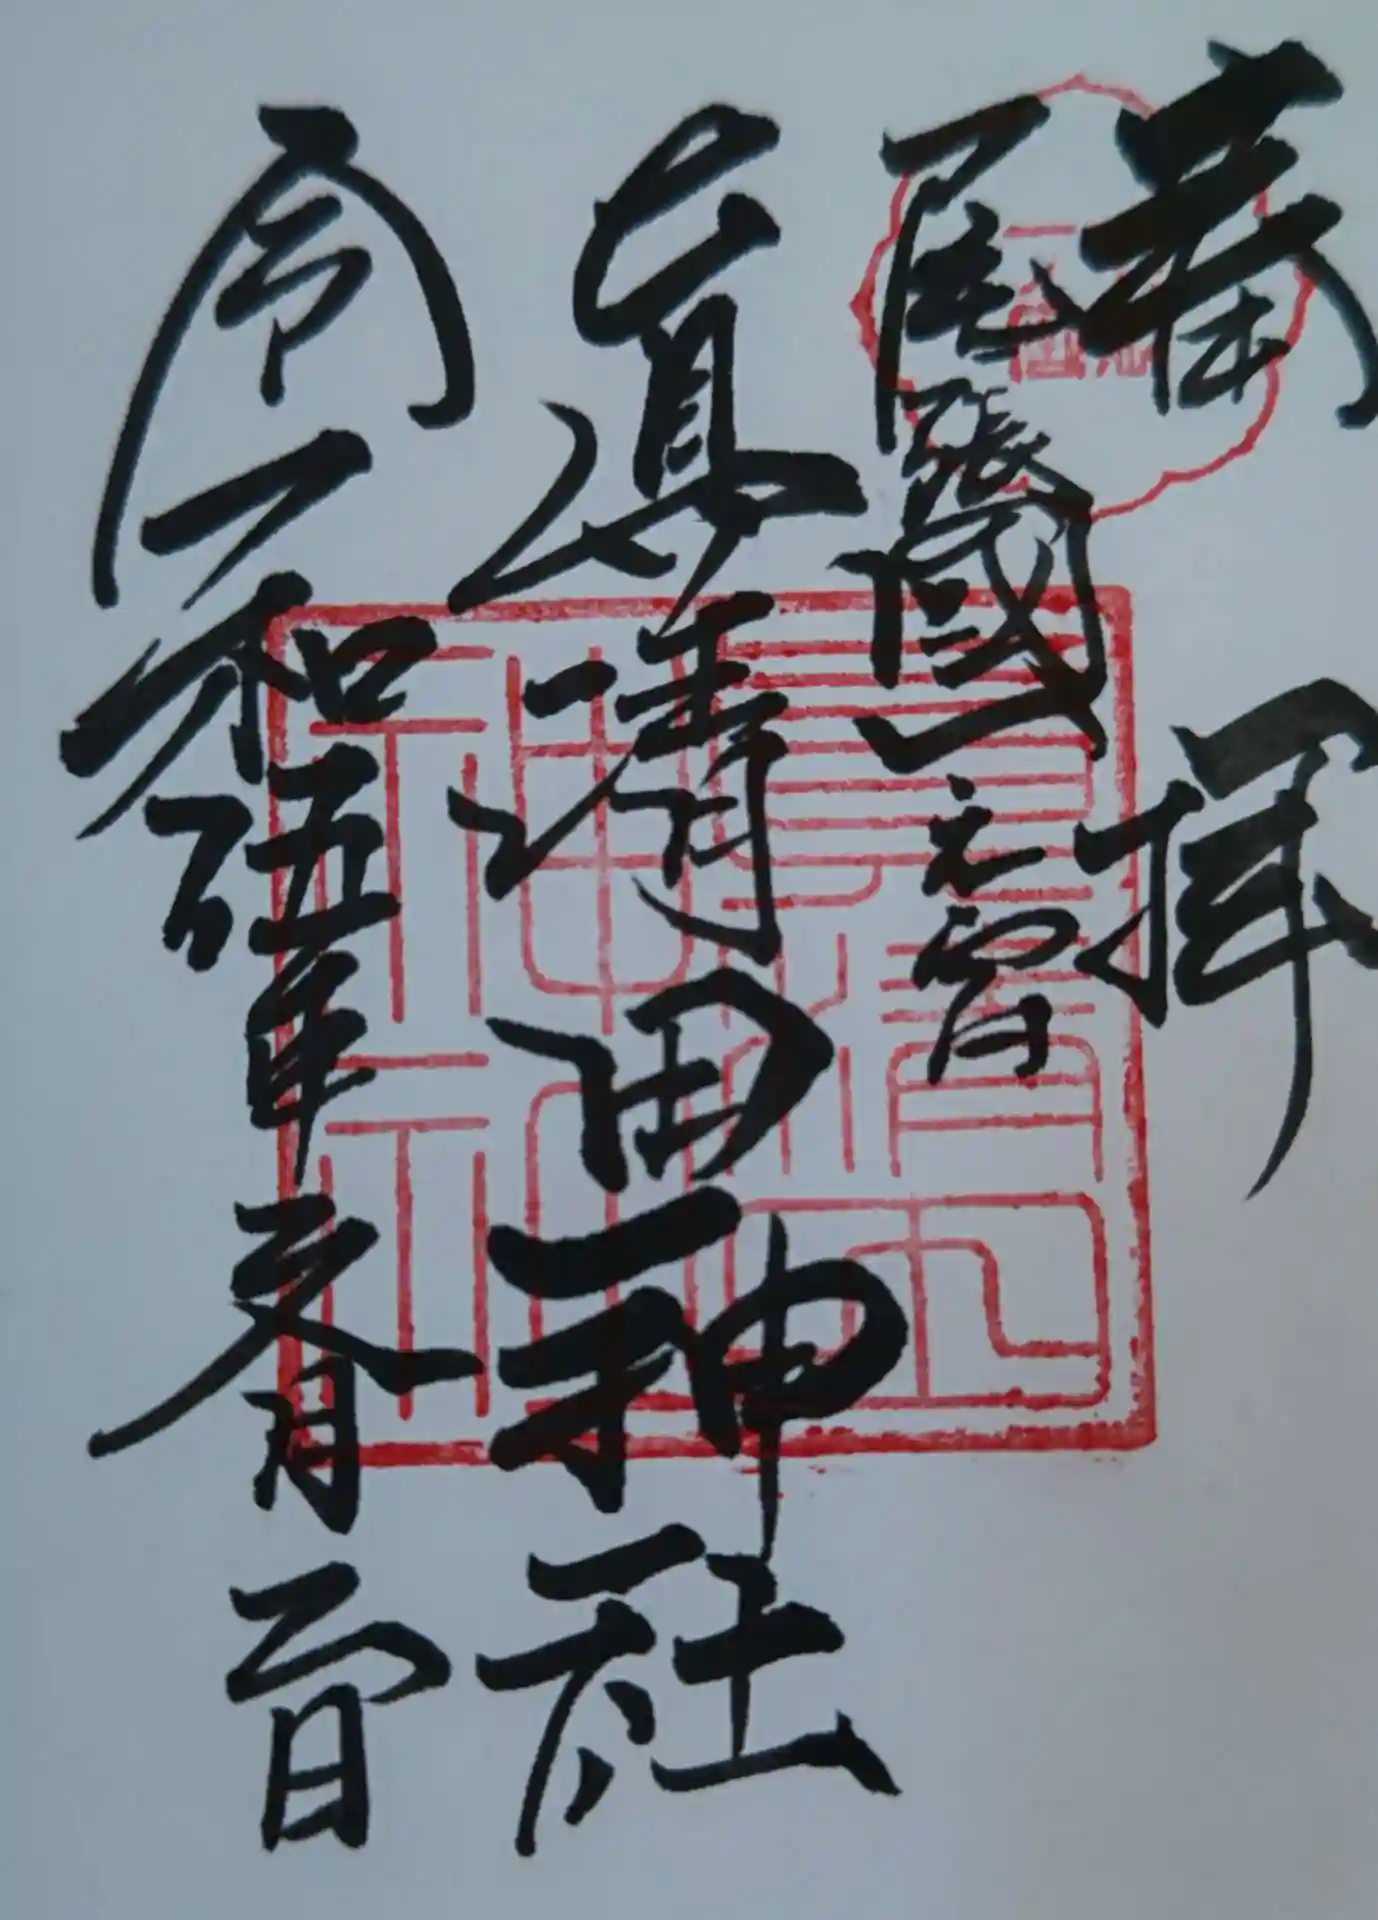 奉拝
尾張國一之宮
真清田神社
令和伍年 月 日